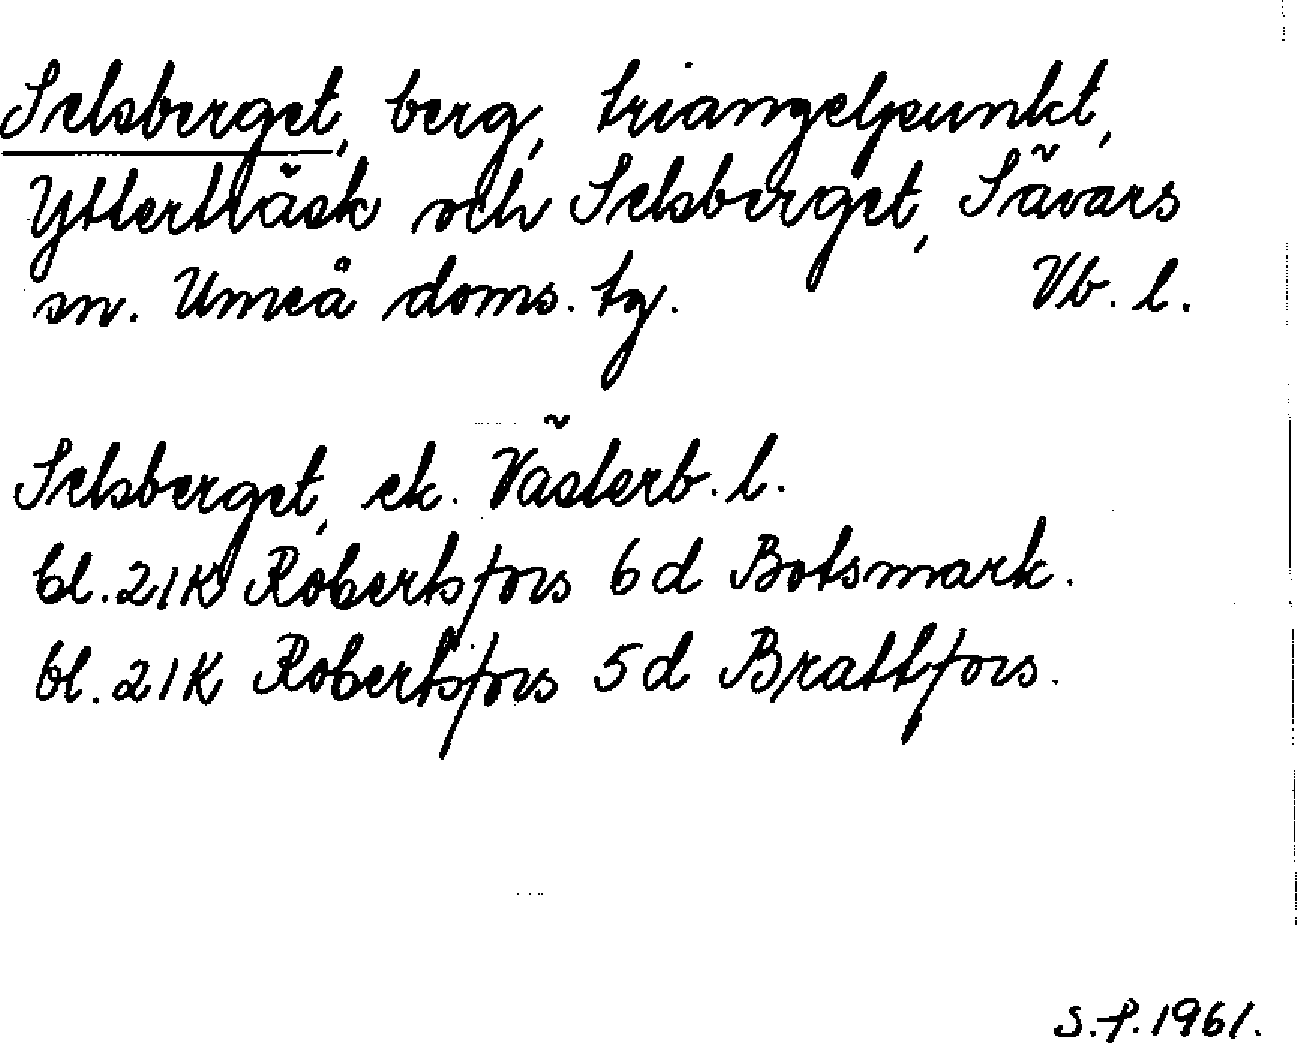 Selsberget, berg, triangelpunkt,
Ytterträsk och Selsberget, Sävars
sn. Umeå doms. tg. Vb. l.
Selsberget, ek. Västerb. l.
bl. 21K Robertsfors 6d Botsmark.
bl. 21K Robertsfors 5d Brattfors.
S.F. 1961.